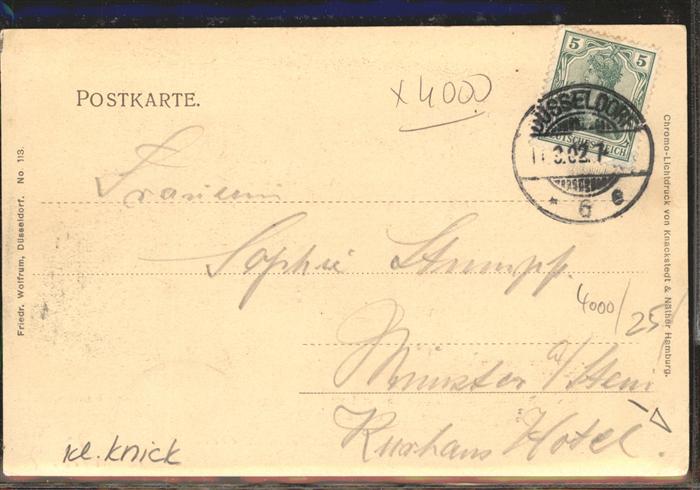 POSTKARTE.
x 4000
5 5
DEUTSCHES REICH
DÜSSELDORF
.02.
* 6 e
Fräulein
Sophie Stumpf.
4000/25
Münster a/Stein
Kurhaus Hotel.
kl. Knick
Friedr. Wolfrum, Düsseldorf. No. 113.
Chromo-Lichtdruck von Knackstedt & Näther Hamburg.